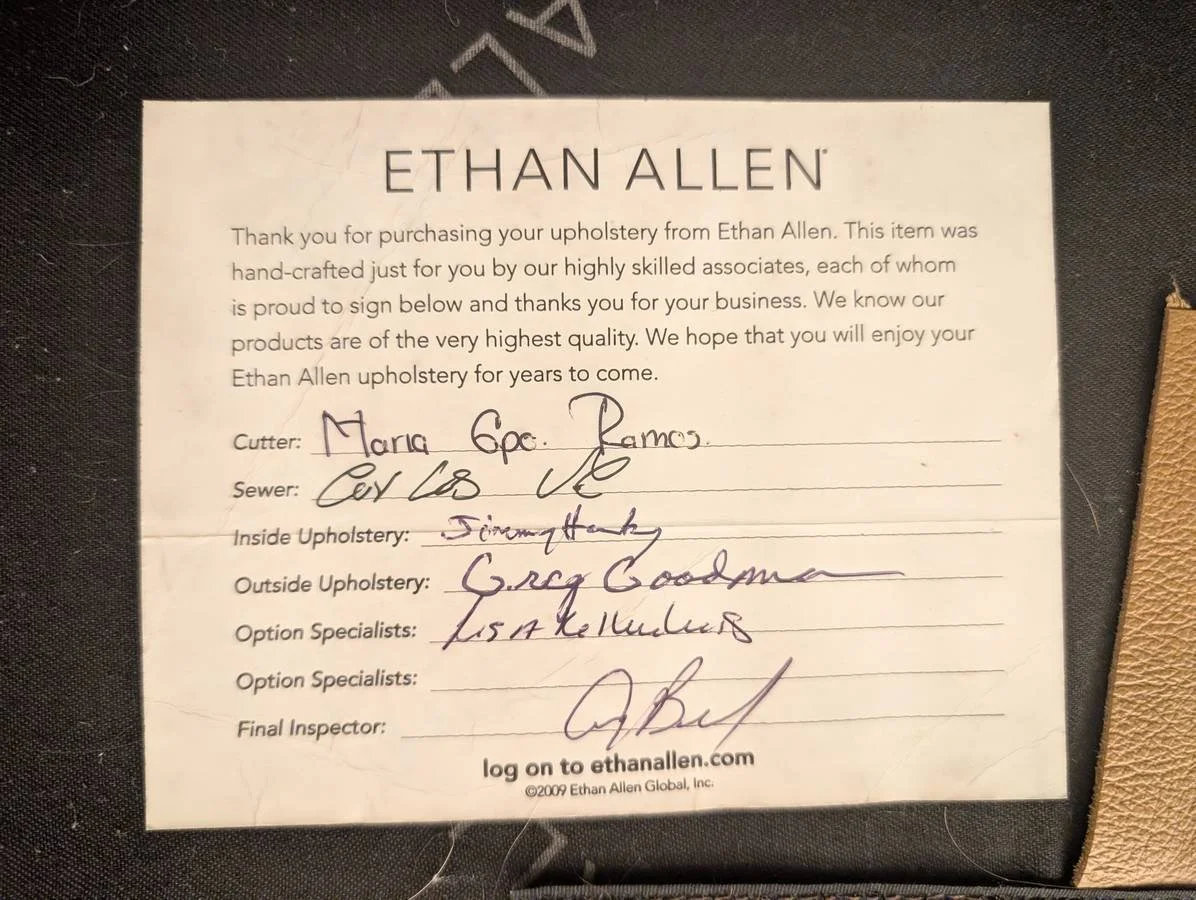 ETHAN ALLEN®
Thank you for purchasing your upholstery from Ethan Allen. This item was
hand-crafted just for you by our highly skilled associates, each of whom
is proud to sign below and thanks you for your business. We know our
products are of the very highest quality. We hope that you will enjoy your
Ethan Allen upholstery for years to come.
Cutter: Maria Gpe. Ramos.
Sewer: Carlos
Inside Upholstery: Jimmy
Outside Upholstery: Greg Goodman
Option Specialists: Lisa
Option Specialists:
Final Inspector:
log on to ethanallen.com
©2009 Ethan Allen Global, Inc.